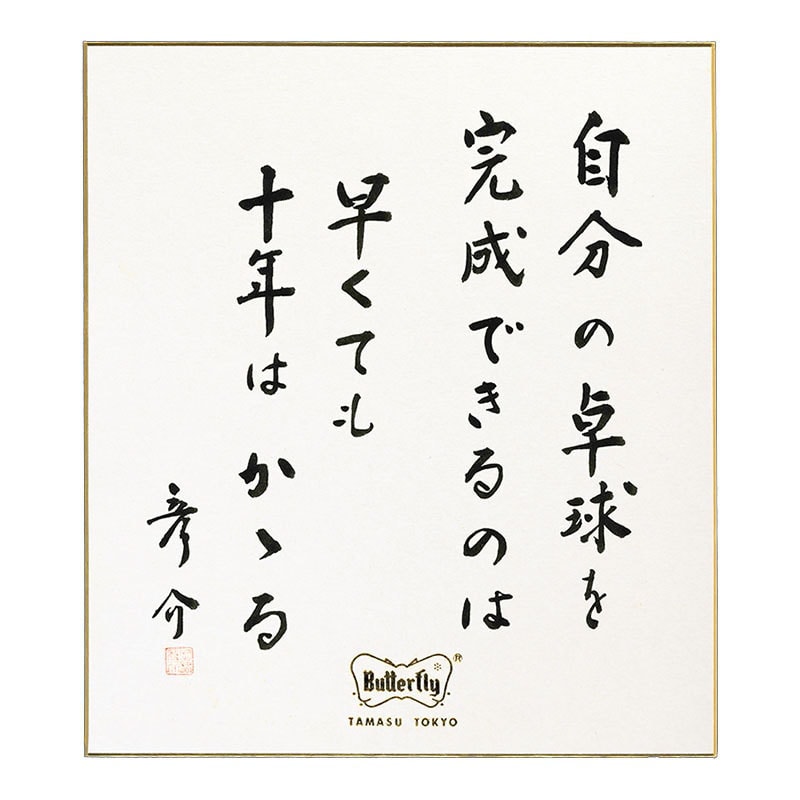 自分の卓球を
完成できるのは
早くても
十年はかゝる
彦介
Butterfly®
TAMASU TOKYO